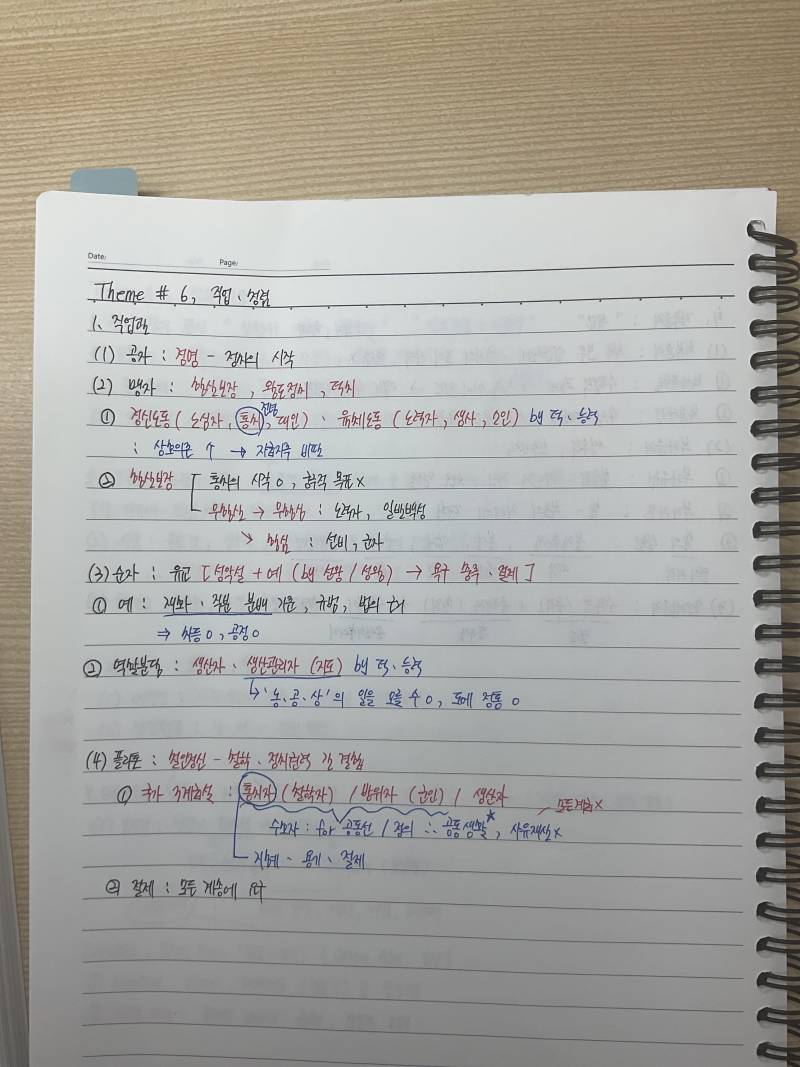 Date:
Page:
Theme # 6, 직업 · 청렴
1. 직업관
(1) 공자 : 정명 - 정사의 시작
(2) 맹자 : 항산보장, 왕도정치, 덕치
① 정신노동 ( 노심자, 통치, 대인 ) · 육체노동 ( 노력자, 생사, 소인 ) by 덕 · 능력
: 상호의존 ↑ → 자급자족 비판
② 항산보장 통치의 시작 o, 궁극적 목표 x
무항산 → 무항심 : 노력자, 일반백성
↘ 항심 : 선비, 군자
(3) 순자 : 유교 [ 성악설 + 예 ( by 선왕 / 성왕 ) → 욕구 충족 · 절제 ]
① 예 : 재화 · 직분 분배 기준, 규범, 법의 근거
⇒ 차등 o, 공정 o
② 역할분담 : 생산자 · 생산관리자 (지도) by 덕 · 능력
↳ '농·공·상'의 일을 모를 수 o, 도에 정통 o
(4) 플라톤 : 철인정신 - 철학 · 정치권력 간 결합
① 국가 3계층설 : 통치자 (철학자) / 방위자 (군인) / 생산자
모든계층 x
수호자 : for 공동선 / 정의 ∴ 공동생활*, 사유재산 x
지혜 - 용기 · 절제
② 절제 : 모든 계층에